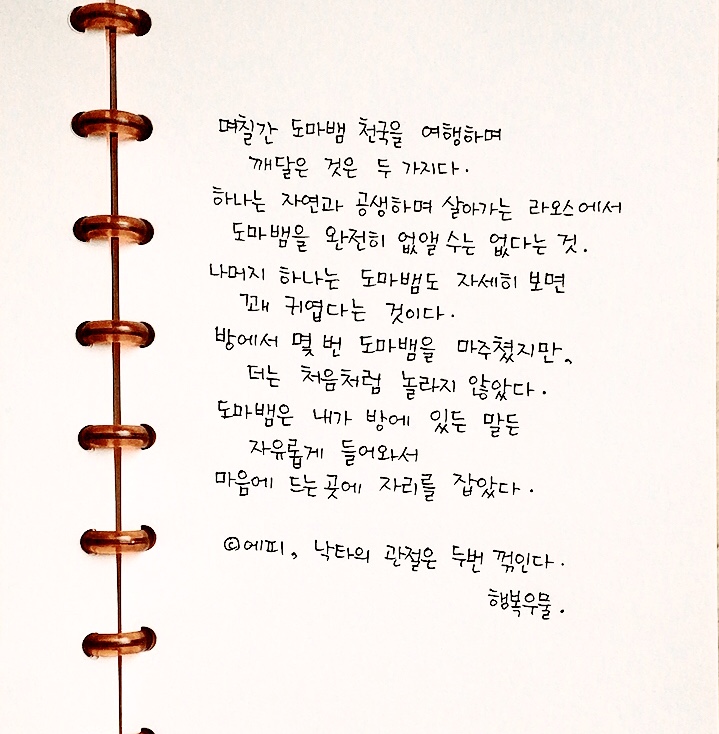 며칠간 도마뱀 천국을 여행하며
깨달은 것은 두 가지다.
하나는 자연과 공생하며 살아가는 라오스에서
도마뱀을 완전히 없앨 수는 없다는 것.
나머지 하나는 도마뱀도 자세히 보면
꽤 귀엽다는 것이다.
방에서 몇 번 도마뱀을 마주쳤지만,
더는 처음처럼 놀라지 않았다.
도마뱀은 내가 방에 있든 말든
자유롭게 들어와서
마음에 드는 곳에 자리를 잡았다.
©에피, 낙타의 관절은 두번 꺾인다.
행복우물.